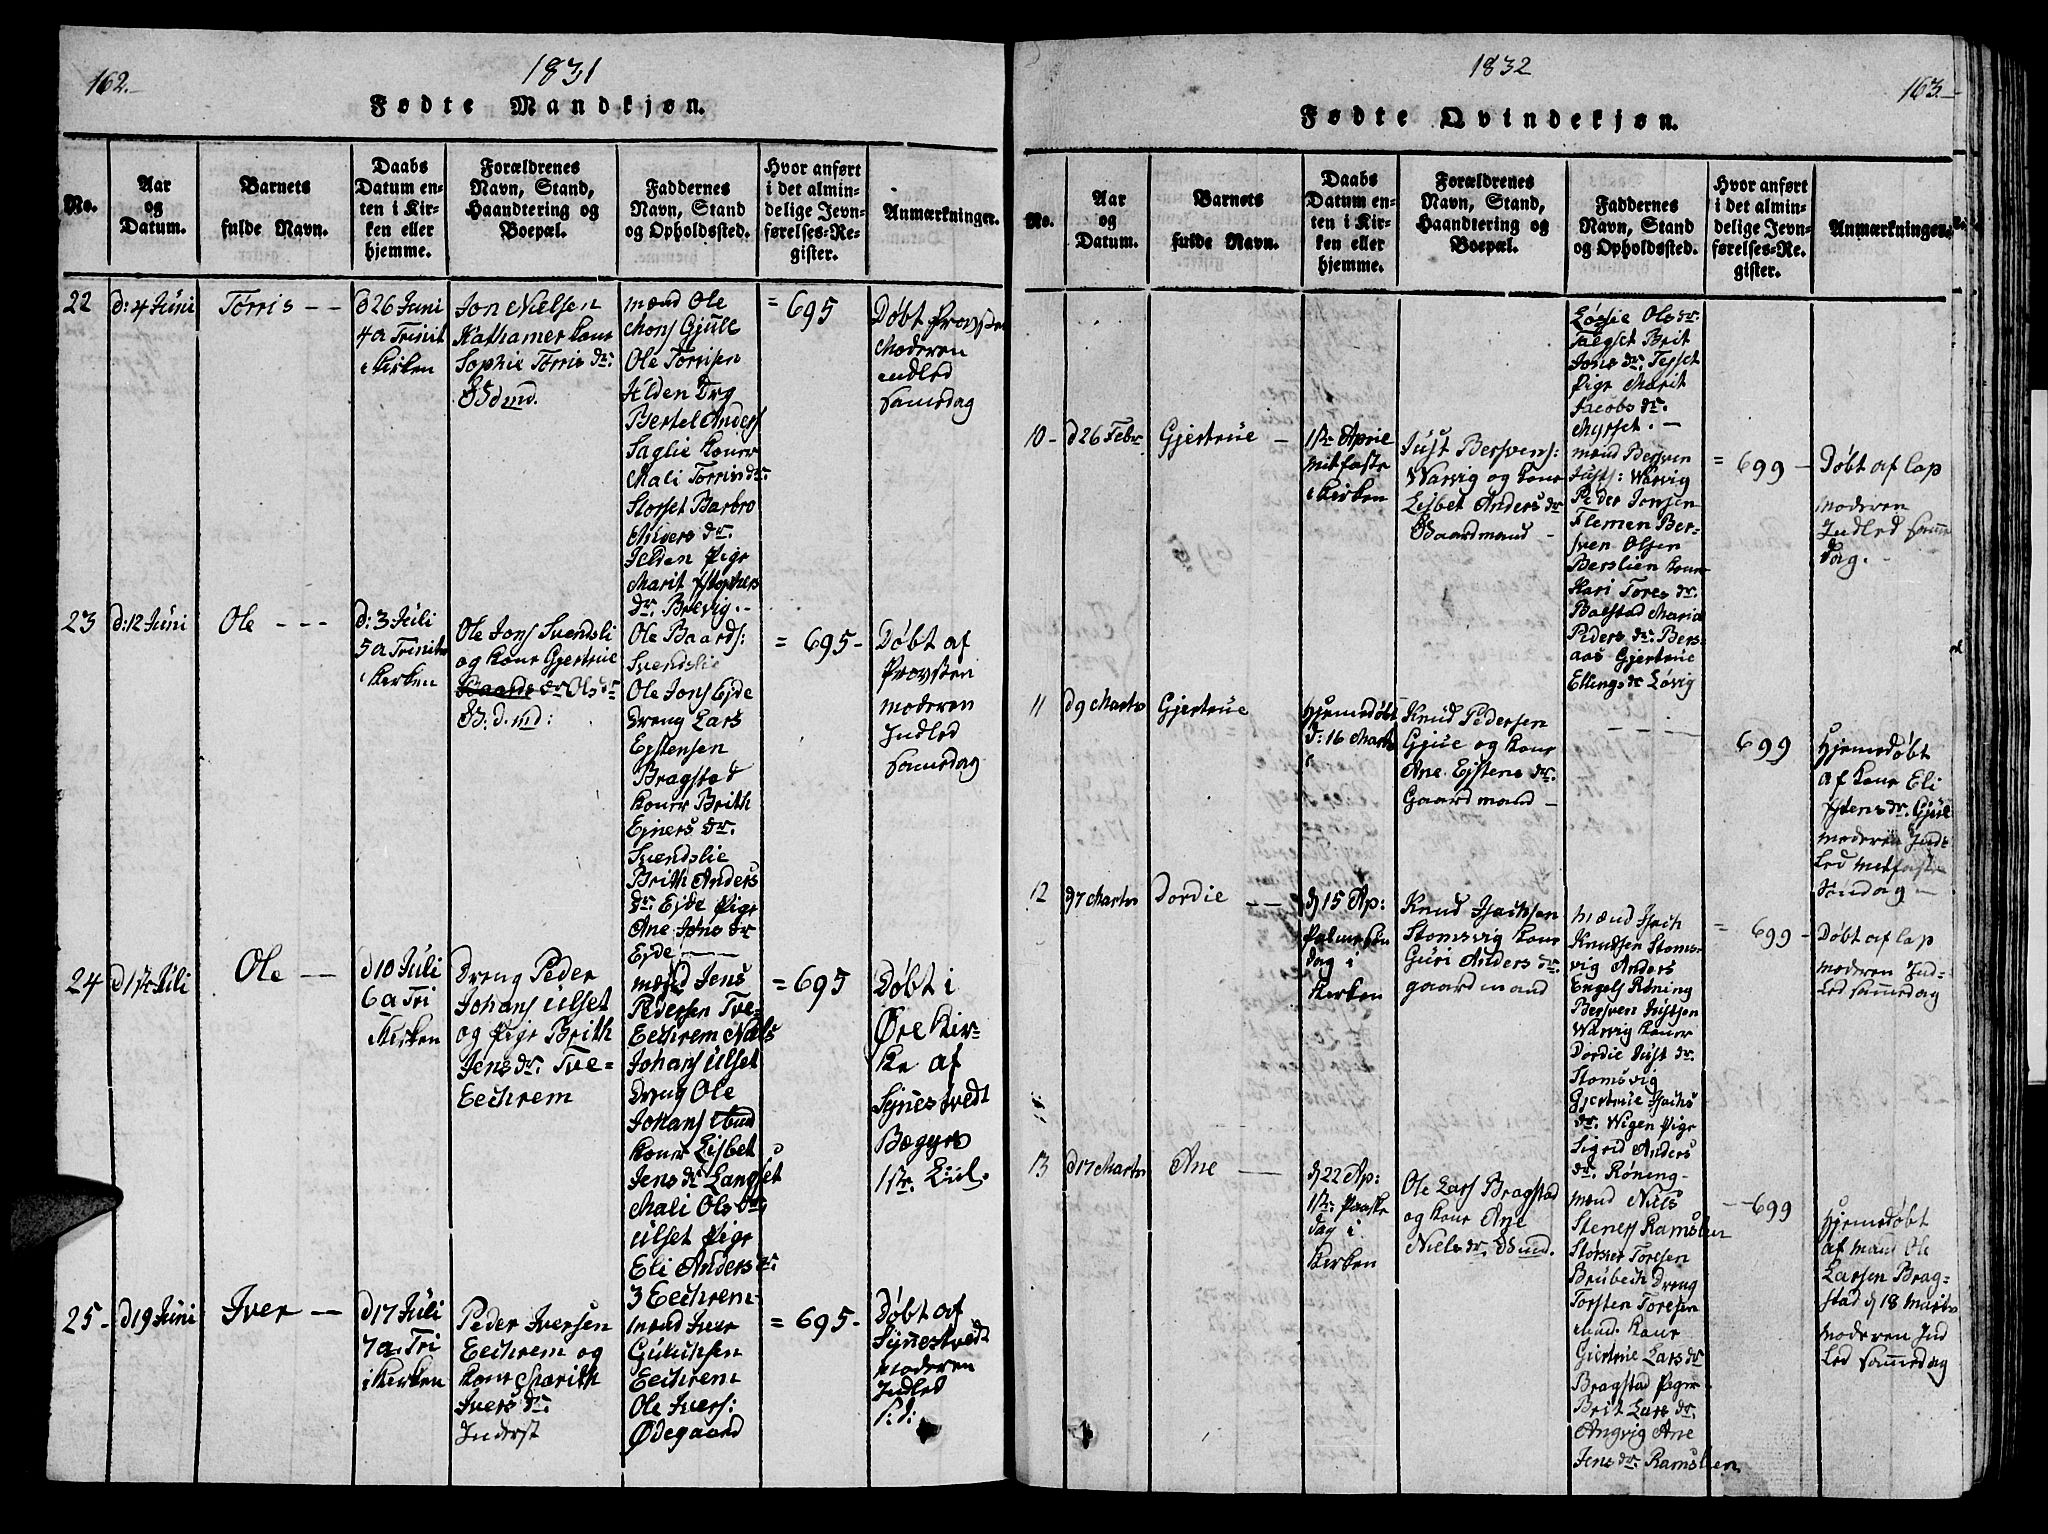 162.
1831
Fødte Mandkjøn.
No.
Aar
og
Datum.
Barnets
fulde Navn.
Daabs
Datum en-
ten i Kir-
ken eller
hjemme.
Forældrenes
Navn, Stand,
Haandtering og
Boepæl.
Faddernes
Navn, Stand
og Opholdssted.
Hvor anført
i det almin-
delige Jevn-
førelses-Re-
gister.
Anmærkninger.
22
d: 4 Juni
Torris - -
d 26 Juni
4 a Trinit
i Kirken
Jon Nielsen
Kathamer Kone
Sophie Torris dr:
mænd Ole
Mons Gjüle
Ole Torrisen
Jelden Drg
Bertel Anders
Saglie Koner
Mali Torris dr:
Storset Barbro
Jelden Pige
Marit
dr: Brevig. -
= 695
Døbt Provsten
Moderen
indled
samedag
23
d: 12 Juni
Ole - - -
d: 3 Juli
5 a Trinit
i Kirken
Ole Jons Svendsli
og Kone Gjertrue
Baards dr Ols dr
B: d. md:
Ole Baards:
Svendslie
Ole Jons Ejde
Dreng Lars
Ejstensen
Bragstad
Koner Brith
Ejners dr:
Svendslie
Brith Anders
dr: Ejde Pige
Ane Jons dr
Ejde -
= 695 -
Døbt af
Provsten
moderen
Indled
samedag
24
d 1ste Juli
Ole - -
d 10 Juli
6 a Tri
i Kirken
Dreng Peder
Johans Ulset
og Pige Brith
Jens dr: Tve=
Eechrem
mænd Jens
Pedersen Tve=
Eechrem Niels
Johans Ulset
Dreng Ole
Johans
Kone Lisbet
Jens dr Langset
Mali Ols dr:
Ulset Pige
Eli Anders dr:
Eechrem
= 695
Døbt i
Øre Kir-
ke af
Synestvedt
25 -
d 19 Juni
Iver - -
d 17 Juli
7 a. Tri
i Kirken
Peder Iversen
Eechrem og
Kone Marith
Ivers dr:
Inderst
mænd Iver
Eechrem
Ole Ivers:
Ødegaard
= 695 -
Døbt af
Synestvedt
moderen
Indled
S: d:
1832
163. -
Fødte Qvindekjøn.
No.
Aar
og
Datum.
Barnets
fulde Navn.
Daabs
Datum en-
ten i Kir-
ken eller
hjemme.
Forældrenes
Navn, Stand,
Haandtering og
Boepæl.
Faddernes
Navn, Stand
og Opholdssted.
Hvor anført
i det almin-
delige Jevn-
førelses-Re-
gister.
Anmærkninger.
Ols dr:
Brit
Jons dr:
Pige Marit
Jacobs dr:
Myrset. -
10 -
d 26 Febr
Gjertrue -
1ste April
Mitfaste
i Kirken
Just Bersvens:
Warvig og Kone
Lisbet Anders dr
Gaardmand -
mænd Bersven
Justs: Warvig
Peder Jonsen
Flemen Ber-
sven Olsen
Berslien Kone
Kari Tores dr:
Bolstad Maria
Peders dr: Bers-
aas Gjertrue
Ellings dr Løvig
= 699 -
Døbt af Cap
moderen
Indled same
dag. -
11
d 9 Marts
Gjertrue
Hjemedøbt
d: 16 Marts
Knud Pedersen
Gjüe og Kone
Ane Ejstens dr:
Gaardmand -
- - -
699
Hjemedøbt
af Kone Eli
dr: Gjüe
moderen Ind=
led mitfaste
Søndag -
12
d 7 Marts
Dordie - -
d 15 Ap:
Palmesøn
dag i
Kirken
Knud Isachsen
Stomsvig Kone
Guri Anders dr:
gaardmand
mænd Isach
Knudsen Stoms-
vig Anders
Engels Røning
Bersven Justsen
Warvig Koner
Dordie Just dr:
Stomsvig
Gjertrue Isachs
dr: Wigen Pige
Sigrid Anders
dr: Røning -
= 699 -
Døbt af Cap
moderen Ind=
led samedag
13
d 17 Marts
Ane - -
d 22 Ap:
1ste Paaske
dag i
Kirken
Ole Lars Bragstad
og Kone Ane
Niels dr:
mænd Niels
Steners Ramslien
Størker Toresen
Brübech Dreng
Torsten Toresen
ibid. Kone
Giertrue Lars dr
Bragstad Piger
Brit Lars dr:
Angvig Ane
Jens dr: Ramslien
- 699
Hjemedøbt
af mand Ole
Larsen Brag-
stad d 18 Marts
moderen Ind
led samedag